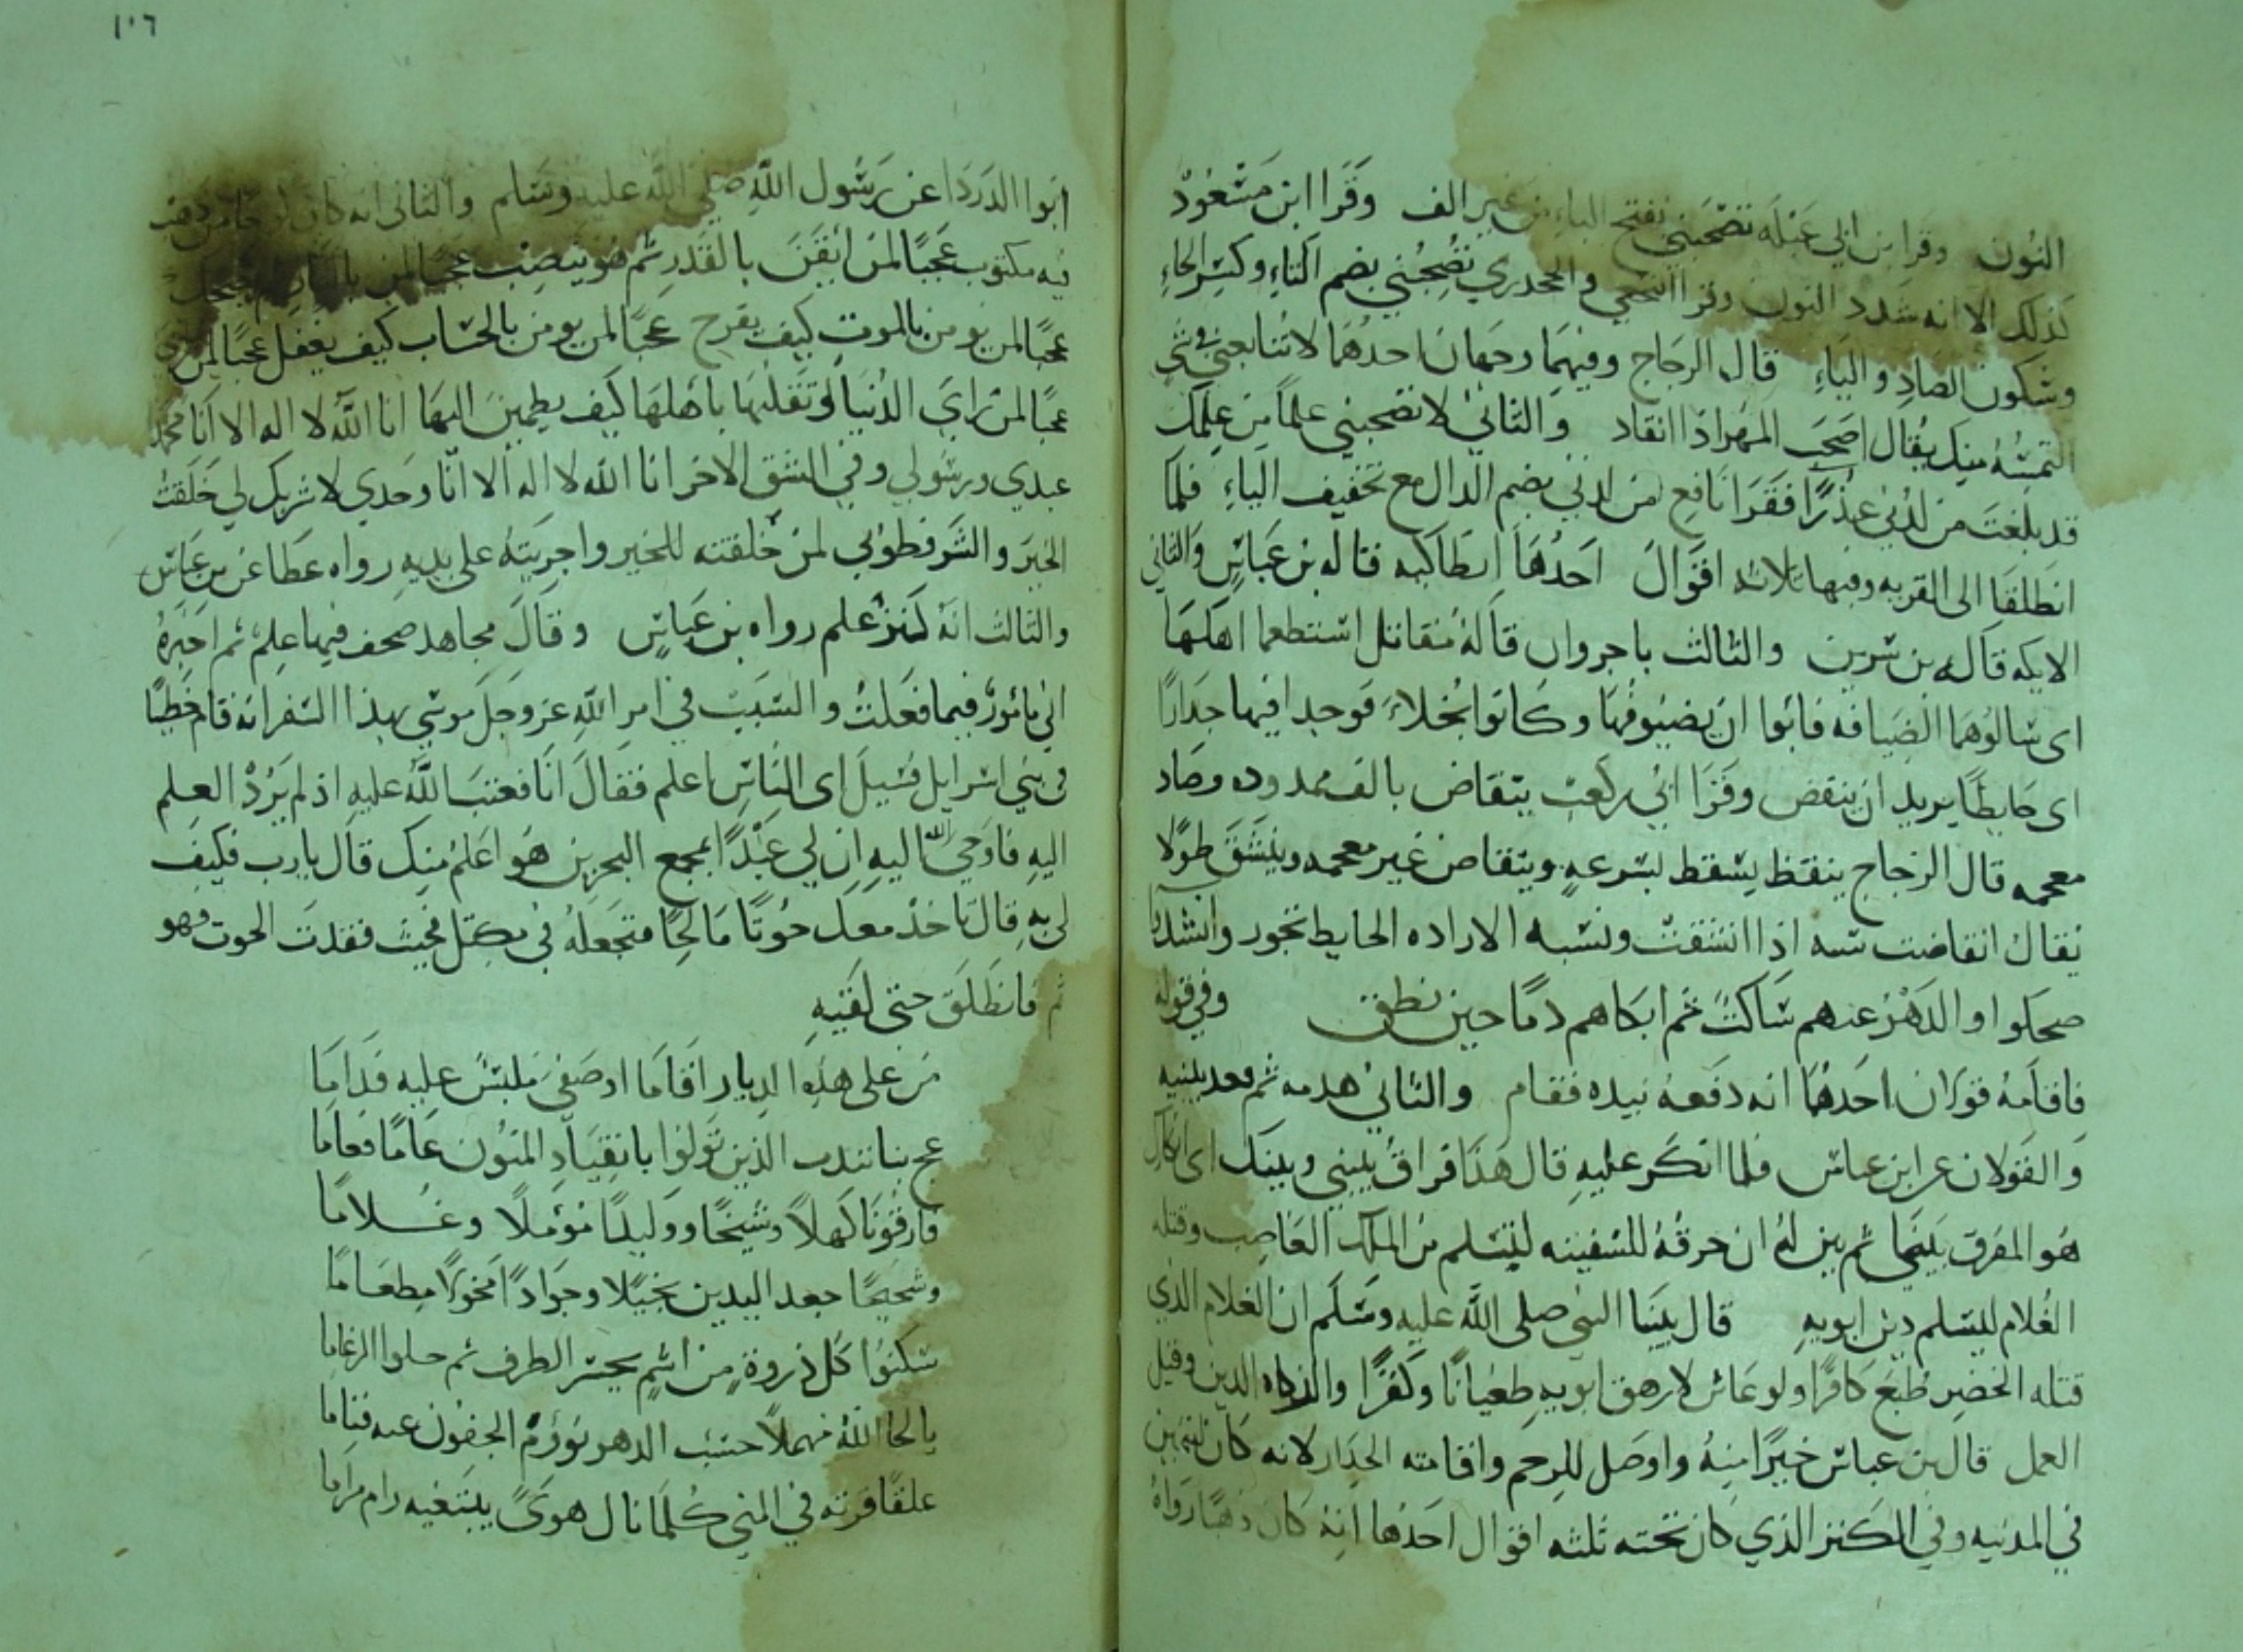 النون وقرا بن ابي عبلة تصحبني بفتح الباء من غير الف وقرا ابن مسعود
كذلك الا انه شدد النون وقرا النخعي والجحدري تصحبني بضم التاء وكسر الحاء
وسكون الصاد والباء قال الزجاج وفيهما وجهان احدهما لا تتابعني في شي
التمسه منك يقال اصحب المهر اذا انقاد والثاني لا تصحبني علما من علمك
قد بلغت من لدني عذرا فقرا نافع من لدني بضم الدال مع تخفيف الياء فلما
انطلقا الى القريه وفيها ثلاثه اقوال احدها انطاكيه قاله بن عباس والثاني
الايكه قاله بن سيرين والثالث باجروان قاله مقاتل استطعما اهلها
اى سالوهما الضيافه فابوا ان يضيفوهما وكانوا بخلاء فوجدا فيها جدارا
اى حايطا يريد ان ينقض وقرا ابي بن كعب ينقاض بالف ممدوده وضاد
معجمه قال الزجاج ينقض يسقط بسرعه وينقاص غير معجمه وينشق طولا
يقال انقاضت سنه اذا انشقت ونسبه الاراده الى الحايط تجوز وانشدوا
ضحكوا والدهر عنهم ساكت ثم ابكاهم دما حين نطق وفي قوله
فاقامه قولان احدهما انه دفعه بيده فقام والثاني هدمه ثم قعد يبنيه
والقولان عن ابن عباس فلما انكر عليه قال هذا فراق بيني وبينك اى انكارك
هو المفرق بيننا ثم بين له ان خرقه للسفينه ليتسلم من الملك الغاصب وقتله
الغلام ليسلم دين ابويه قال نبينا النبي صلى الله عليه وسلم ان الغلام الذي
قتله الخضر طبع كافرا ولو عاش لارهق ابويه طغيانا وكفرا والزكاه الدين وقيل
العمل قال بن عباس خيرا منه واوصل للرحم واقامته الجدار لانه كان ليتيمين
في المدينه وفي الكنز الذي كان تحته ثلثه اقوال احدها انه كان ذهبا رواه
١٠٦
ابوا الدردا عن رسول الله صلى الله عليه وسلم والثاني انه كان لوحا من ذهب
فيه مكتوب عجبا لمن ايقن بالقدر ثم هو ينصب عجبا لمن بالنار ثم يضحك
عجبا لمن يومن بالموت كيف يفرح عجبا لمن يومن بالحساب كيف يغفل عجبا لمن
عجبا لمن راي الدنيا وتقلبها باهلها كيف يطمين اليها انا الله لا اله الا انا محمد
عبدي ورسولي وفي الشق الاخر انا الله لا اله الا انا وحدي لا شريك لي خلقت
الخير والشر فطوبي لمن خلقته للخير واجريته على يديه رواه عطا عن بن عباس
والثالث انه كنز علم رواه بن عباس وقال مجاهد صحف فيها علم ثم اخبره
اني مامور فيما فعلت والسبب في امر الله عز وجل موسي بهذا السفر انه قام خطيبا
في بني اسرايل فسيل اى الناس اعلم فقال انا فعتب الله عليه اذ لم يرد العلم
اليه فاوحي الله اليه ان لي عبدا بمجمع البحرين هو اعلم منك قال يارب فكيف
لي به قال تاخذ معك حوتا مالحا فتجعله في مكتل فحيث فقدت الحوت فهو
ثم فانطلق حتى لقيه
من على هذه الديار اقاما او صفي ملبس عليه فداما
عج بنا نندب الذين تولوا بانقياد المنون عاما فعاما
فارقونا كهلا وشيخا ووليدا مؤملا وغلاما
وشحيحا جعد اليدين بخيلا وجوادا مخولا مطعاما
سكنوا كل ذروة من اشم يحسر الطرف ثم حلوا الرغاما
يا لحا الله مهملا حسب الدهر نؤوم الجفون عنه فناما
علقا قرته في المني كلما نال هوى يبتغيه رام مراما